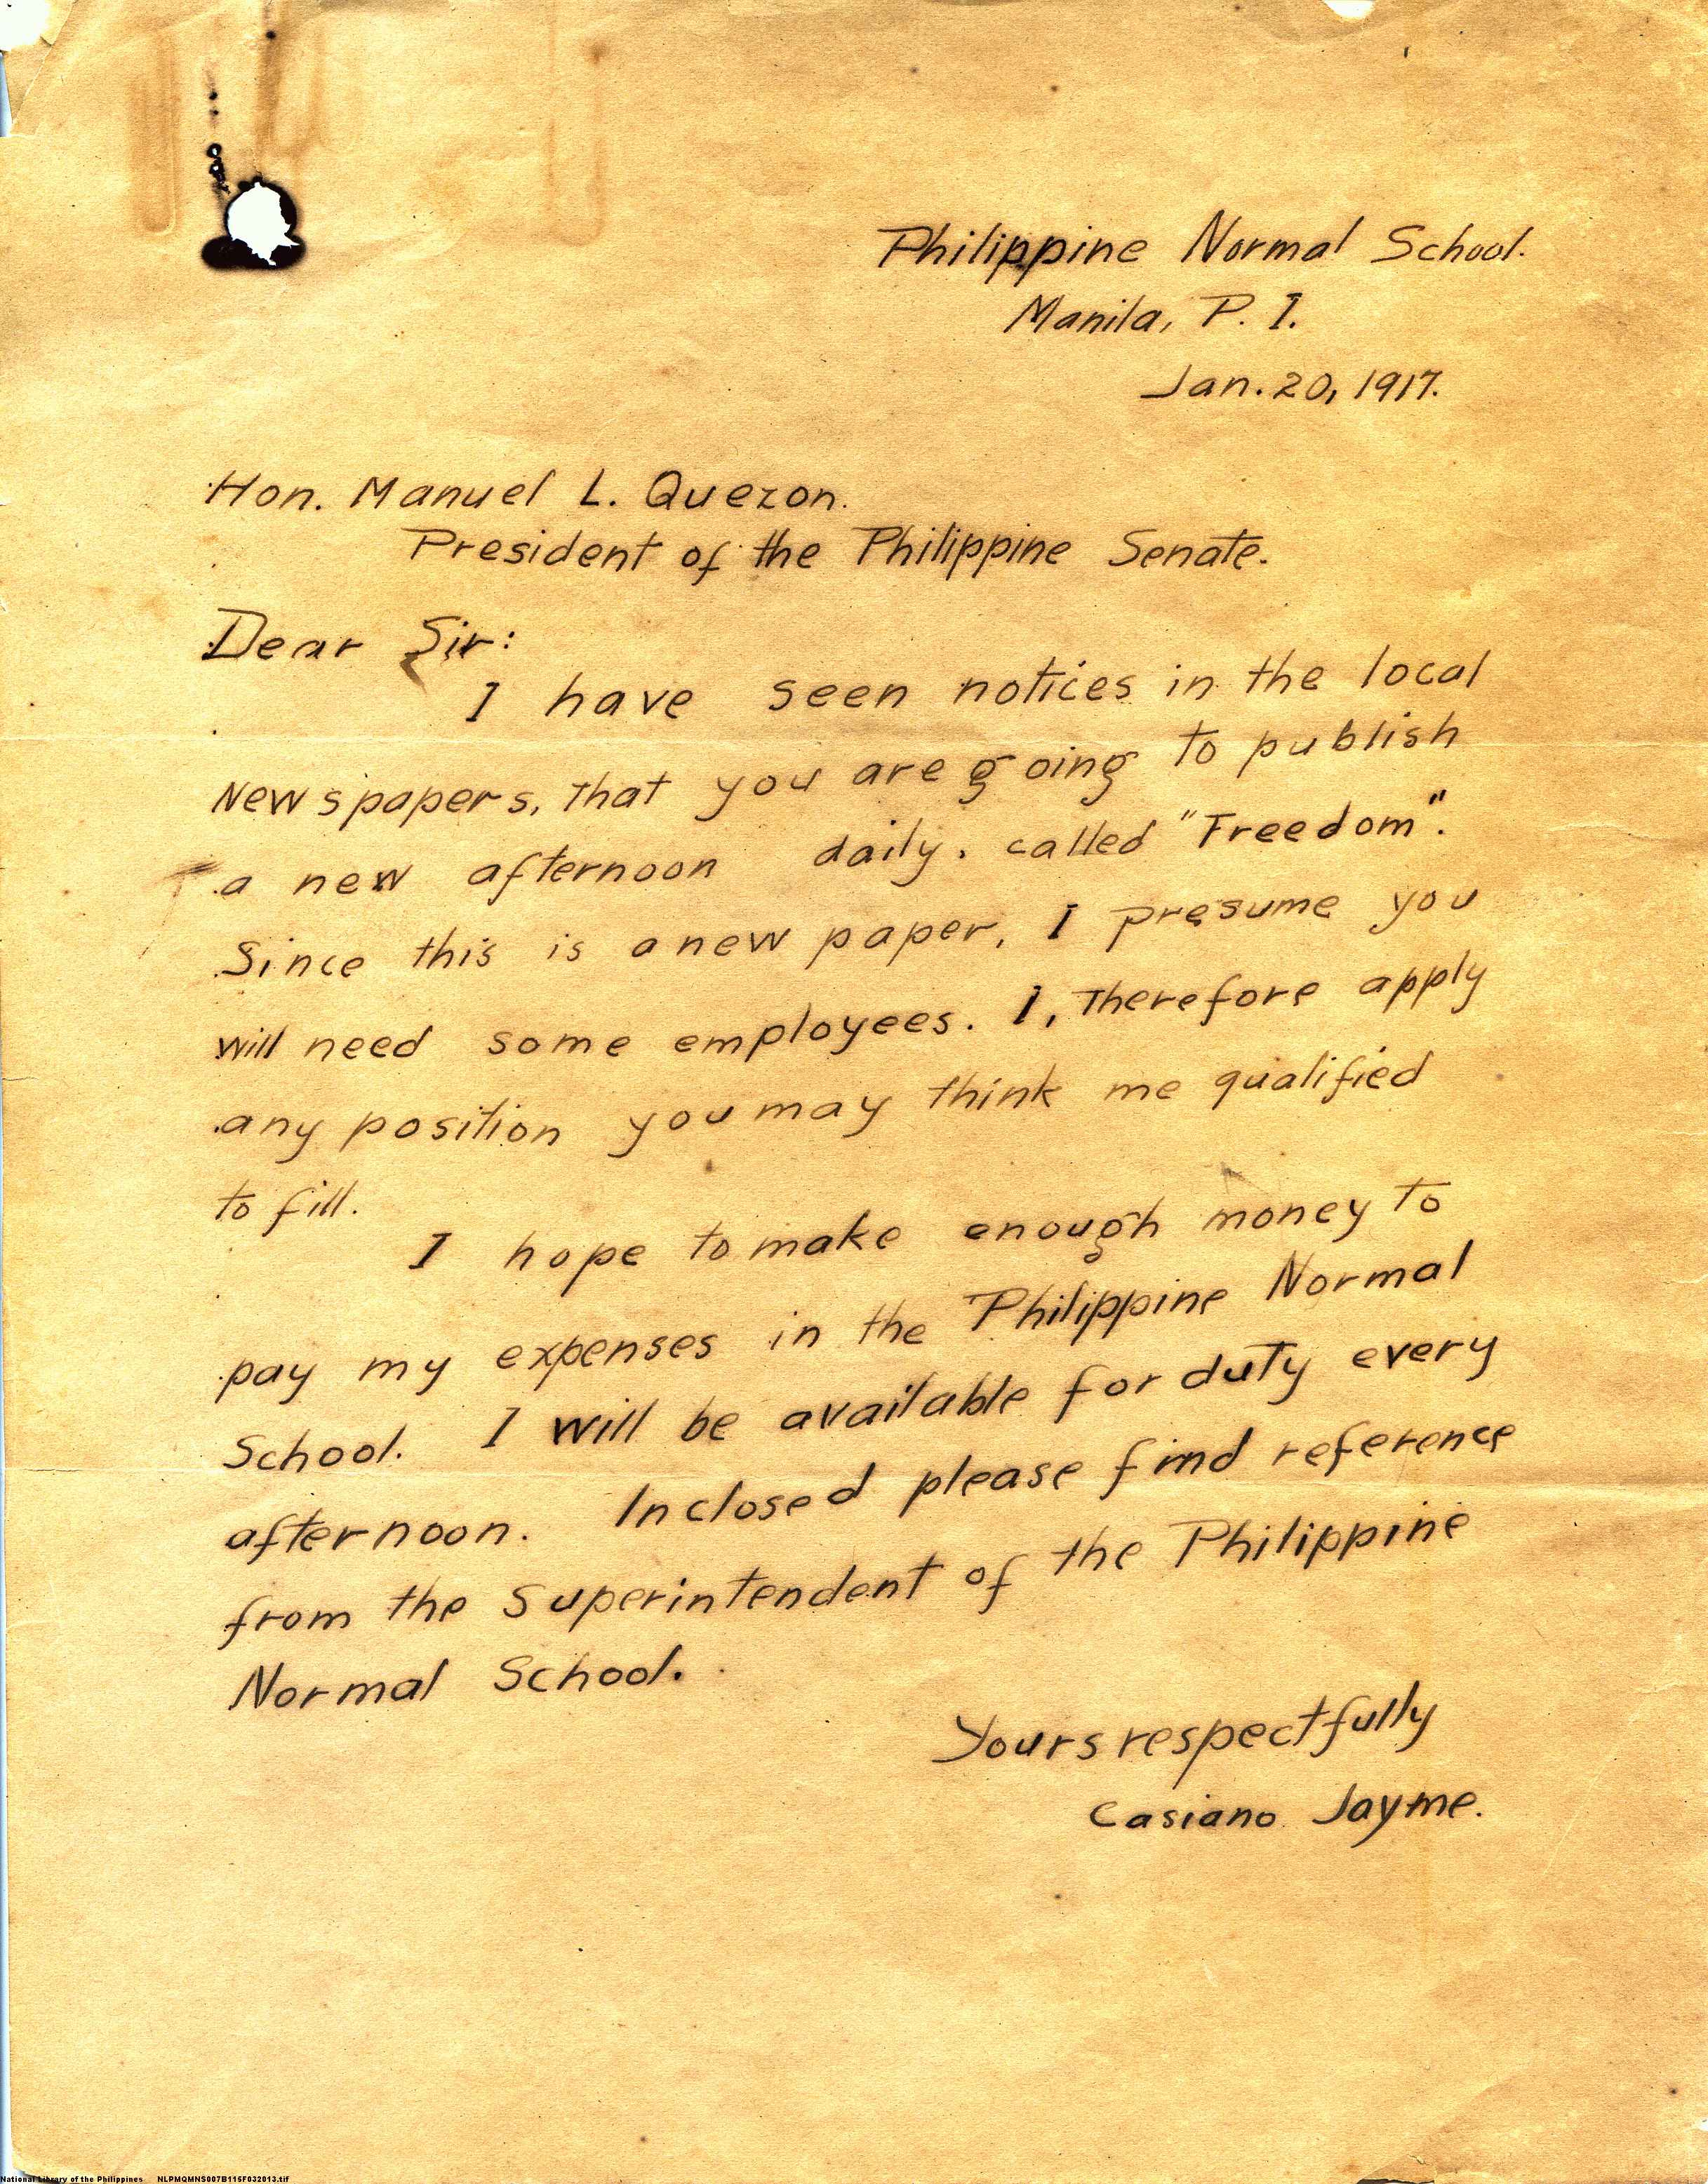 Philippine Normal School.
Manila, P. I.
Jan. 20, 1917.
Hon. Manuel L. Quezon.
President of the Philippine Senate.
Dear Sir:
I have seen notices in the local
Newspapers, that you are going to publish
a new afternoon daily, called "Freedom".
Since this is a new paper, I presume you
will need some employees. I, therefore apply
any position you may think me qualified
to fill.
I hope to make enough money to
pay my expenses in the Philippine Normal
School. I will be available for duty every
afternoon. Inclosed please find reference
from the Superintendent of the Philippine
Normal School.
Yours respectfully
Casiano Jayme.
National Library of the Philippines NLPMQMNS007B115F032013.tif